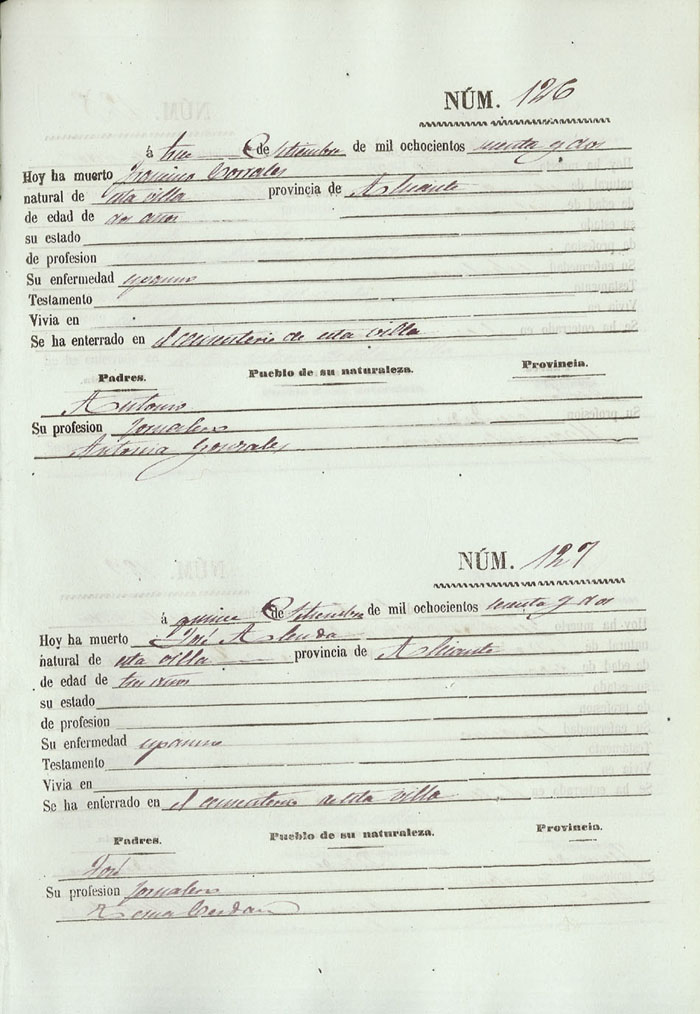 NÚM. 126
á tres de Setiembre de mil ochocientos y dos
Hoy ha muerto Corrales
natural de esta villa provincia de Alicante
de edad de dos años
su estado
de profesion
Su enfermedad
Testamento
Vivia en
Se ha enterrado en el cementerio de esta villa
Padres. Pueblo de su naturaleza. Provincia.
Antonio
Su profesion Jornalero
Antonia Gonzales
NÚM. 127
á quince de Setiembre de mil ochocientos y dos
Hoy ha muerto José
natural de esta villa provincia de Alicante
de edad de tres años
su estado
de profesion
Su enfermedad
Testamento
Vivia en
Se ha enterrado en el cementerio de esta villa
Padres. Pueblo de su naturaleza. Provincia.
José
Su profesion Jornalero
Cerdan